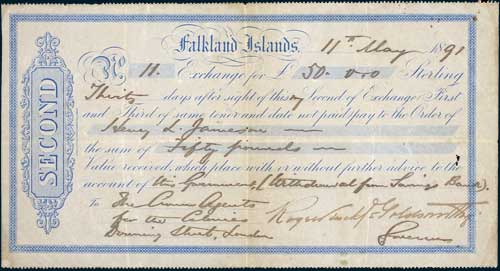 SECOND
Falkland Islands, 11th May 1891
No 11. Exchange for £ 50. 0. 0 Sterling
Thirty days after sight of this my Second of Exchange (First
and Third of same tenor and date not paid) pay to the Order of
Henry L. Jameson
the sum of Fifty pounds
Value received, which place with or without further advice to the
account of this Government (Withdrawal from Savings Bank).
To The Crown Agents
for the Colonies
Downing Street, London
Goldsworthy
Governor